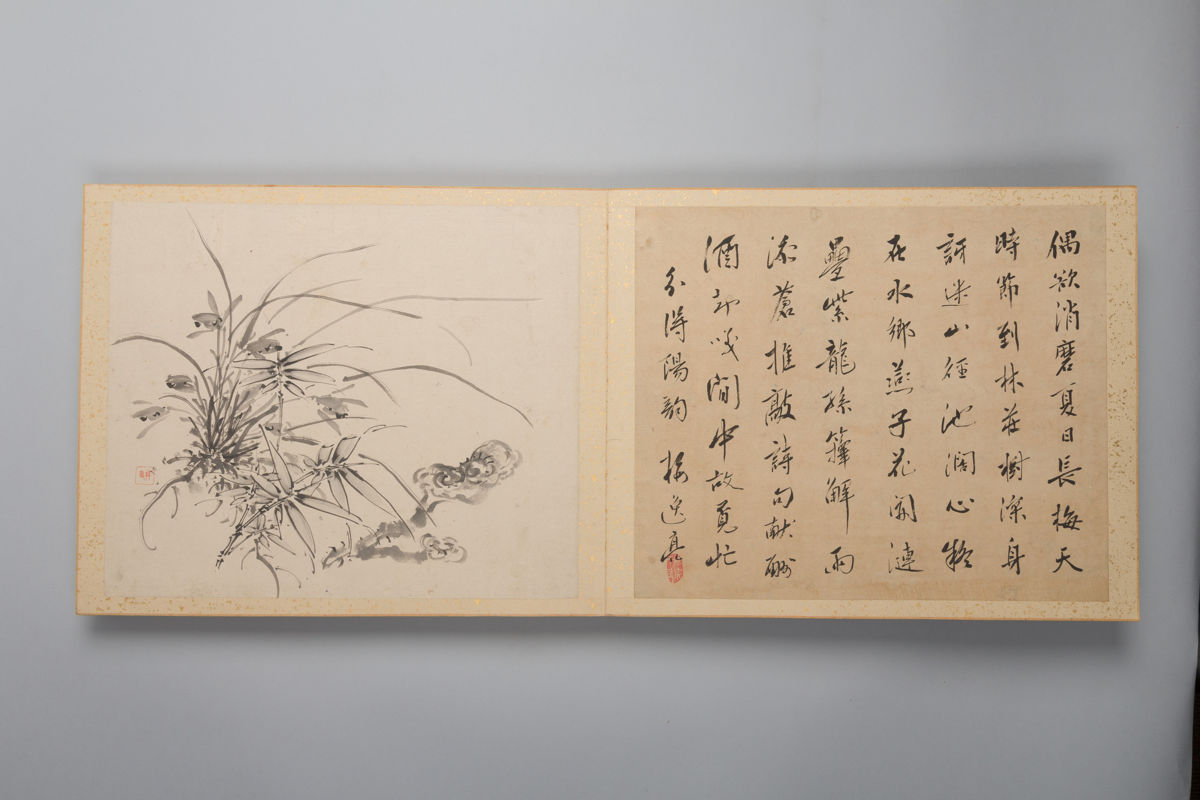 偶欲消磨夏日長梅天
時節到林莊樹深身
訝迷山徑池濶心疑
在水鄉燕子花開漣
疊紫龍孫籜解雨
添蒼推敲詩句献酬
酒却咲閒中故覓忙
分得陽韵 逸